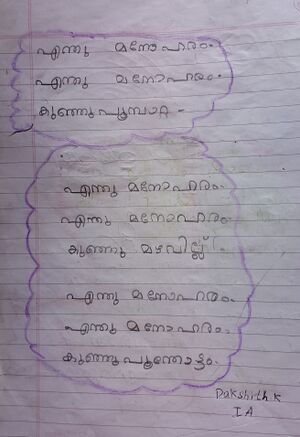 എന്തു മനോഹരം.
എന്തു മനോഹരം.
കുഞ്ഞു പൂമ്പാറ്റ -
എന്തു മനോഹരം.
എന്തു മനോഹരം.
കുഞ്ഞു മഴവില്ല്.
എന്തു മനോഹരം.
എന്തു മനോഹരം.
കുഞ്ഞു പൂന്തോട്ടം.
Dakshith K
I A